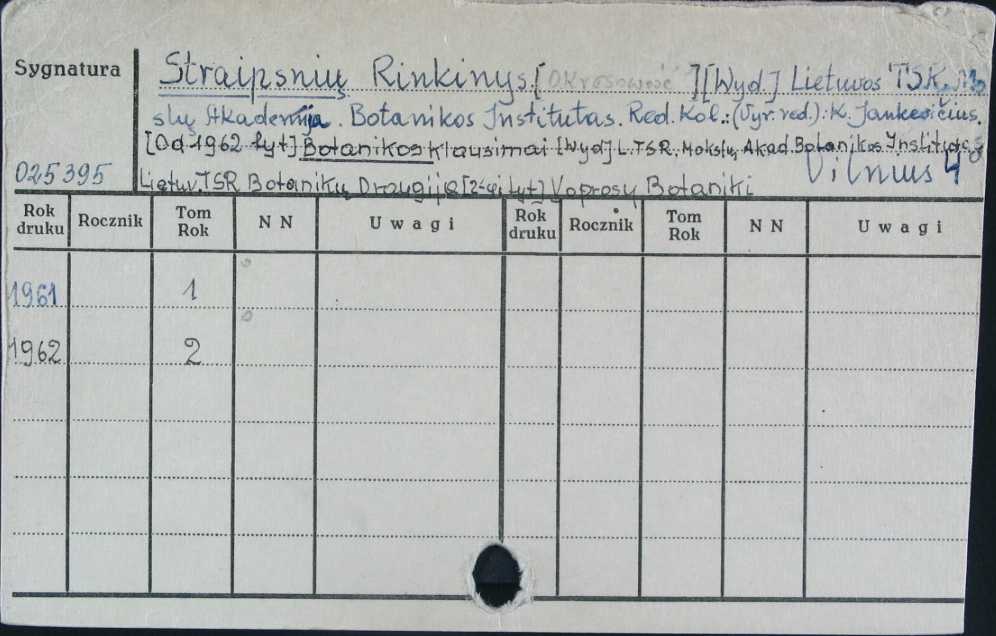 Sygnatura
Straipsnių Rinkinys. [Okresowość] [Wyd.] Lietuvos TSR Mo
slų Akademija. Botanikos Institutas. Red. Kol.: (Vyr. red.): K. Jankevičius.
[Od 1962 tyt] Botanikos klausimai [Wyd] L. TSR. Mokslų Akad Botanikos Institutas
025395 Vilnius 4°
Lietuv. TSR Botanikų Draugija [2-gi tyt] Voprosy Botaniki
Rok druku Rocznik Tom Rok N N Uwagi Rok druku Rocznik Tom Rok N N Uwagi
1961 1
1962 2